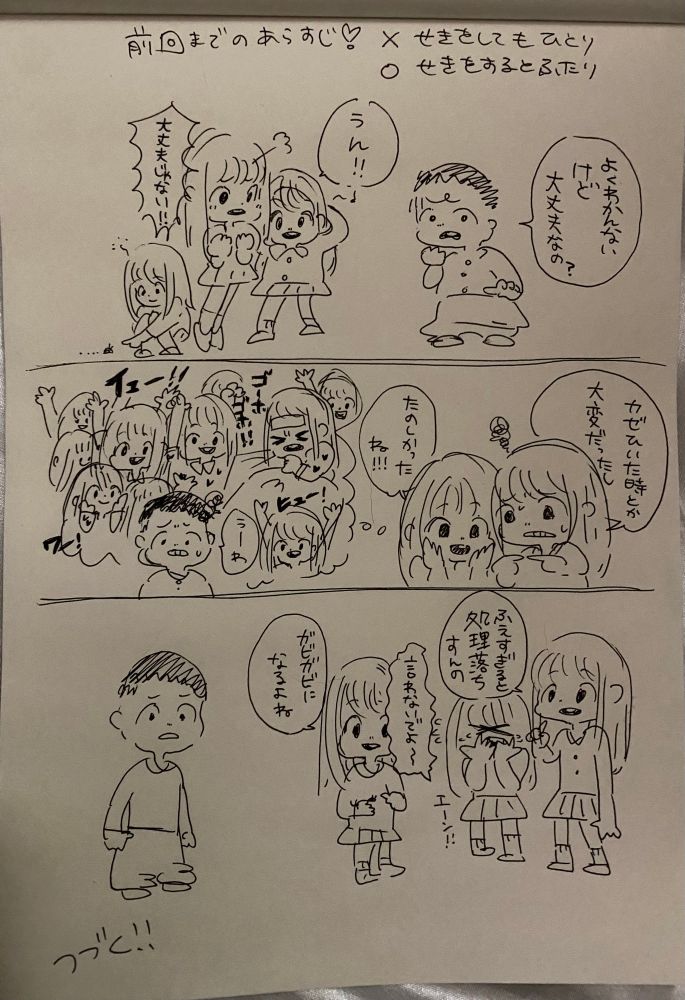 前回までのあらすじ♡ × せきをしてもひとり
○ せきをするとふたり
よくわかんない
けど
大丈夫なの?
うん!!
大丈夫じゃない!!
カゼひいた時とか
大変だったし
たのしかった
ね!!!
ゴーホ
ゴホ!!
イェー!!
ヒュー!
うーわ
ワー!
ふえすぎると
処理落ち
すんの
言わないでよ〜
エーン!!
ガビガビに
なるよね
つづく!!